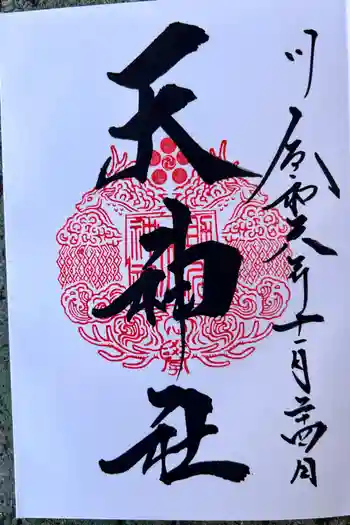 川原 令和六年十一月二十四日
天神社